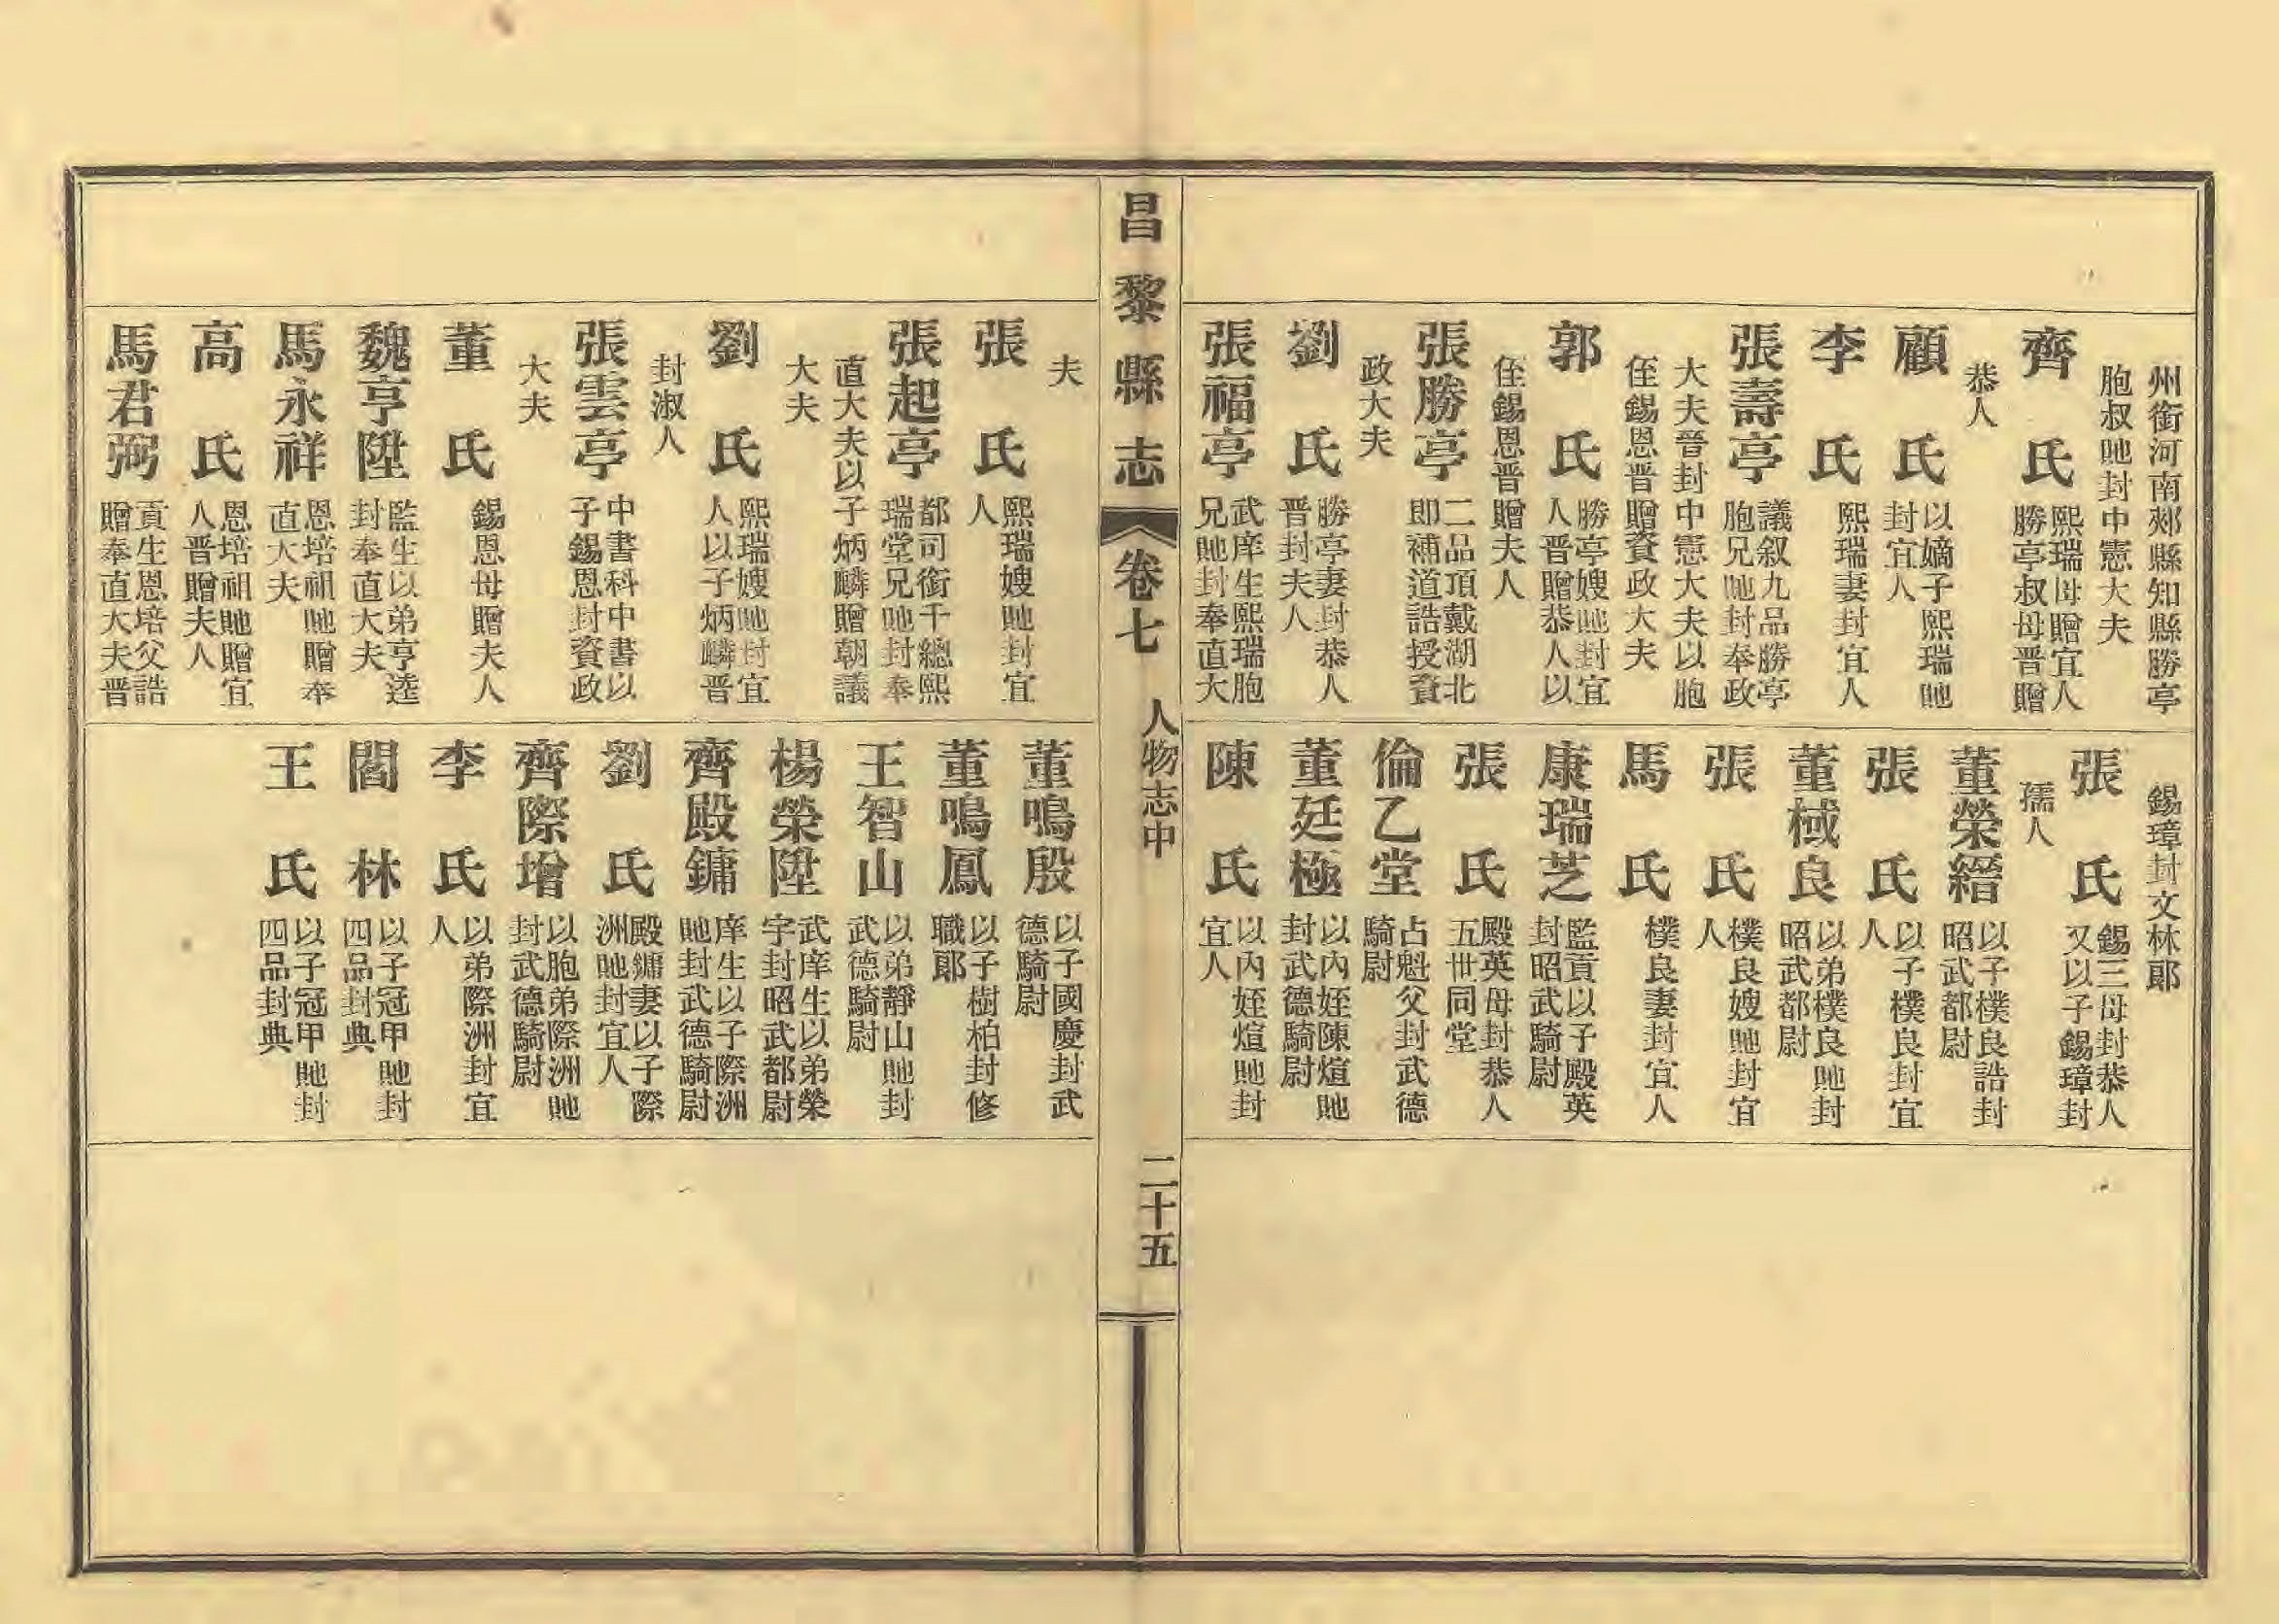 州銜河南郟縣知縣勝亭
胞叔貤封中憲大夫
齊氏
熙瑞母贈宜人
勝亭叔母晋贈
恭人
顧氏
以嫡子熙瑞貤
封宜人
李氏
熙瑞妻封宜人
張壽亭
議叙九品勝亭
胞兄貤封奉政
大夫晉封中憲大夫以胞
侄錫恩晋贈資政大夫
郭氏
勝亭嫂貤封宜
人晋贈恭人以
侄錫恩晋贈夫人
張勝亭
二品頂戴湖北
即補道誥授資
政大夫
劉氏
勝亭妻封恭人
晋封夫人
張福亭
武庠生熙瑞胞
兄貤封奉直大
錫璋封文林郎
張氏
錫三母封恭人
又以子錫璋封
孺人
董榮縉
以子樸良誥封
昭武都尉
張氏
以子樸良封宜
人
董棫良
以弟樸良貤封
昭武都尉
張氏
樸良嫂貤封宜
人
馬氏
樸良妻封宜人
康瑞芝
監貢以子殿英
封昭武騎尉
張氏
殿英母封恭人
五世同堂
倫乙堂
占魁父封武德
騎尉
董廷極
以內姪陳煊貤
封武德騎尉
陳氏
以內姪煊貤封
宜人
昌黎縣志
卷七
人物志中
二十五
夫
張氏
熙瑞嫂貤封宜
人
張起亭
都司銜千總熙
瑞堂兄貤封奉
直大夫以子炳麟贈朝議
大夫
劉氏
熙瑞嫂貤封宜
人以子炳麟晋
封淑人
張雲亭
中書科中書以
子錫恩封資政
大夫
董氏
錫恩母贈夫人
魏亨陞
監生以弟亨逵
封奉直大夫
馬永祥
恩培祖貤贈奉
直大夫
高氏
恩培祖貤贈宜
人晋贈夫人
馬君弼
貢生恩培父誥
贈奉直大夫晋
董鳴殷
以子國慶封武
德騎尉
董鳴鳳
以子樹柏封修
職郎
王智山
以弟靜山貤封
武德騎尉
楊榮陞
武庠生以弟榮
宇封昭武都尉
齊殿鏞
庠生以子際洲
貤封武德騎尉
劉氏
殿鏞妻以子際
洲貤封宜人
齊際增
以胞弟際洲貤
封武德騎尉
李氏
以弟際洲封宜
人
閻林
以子冠甲貤封
四品封典
王氏
以子冠甲貤封
四品封典